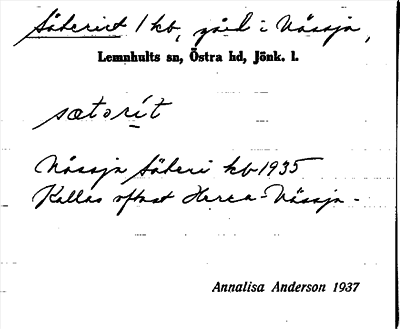 Säteriet 1 kb, gård i Nässja,
Lemnhults sn, Östra hd, Jönk. l.
sætərít
Nässja Säteri kb 1935
Kallas oftast Herra-Nässja.
Annalisa Anderson 1937